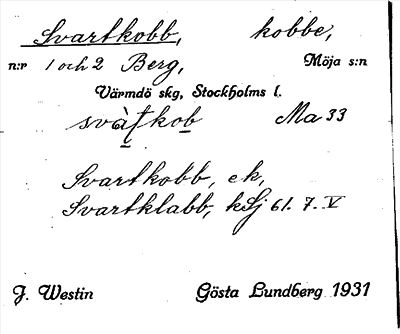 Svartkobb, kobbe,
n:r 1 och 2 Berg, Möja s:n
Värmdö skg, Stockholms l.
Ma 33
Svartkobb, ek,
Svartklabb, kSj 61. 7. V
J. Westin Gösta Lundberg 1931